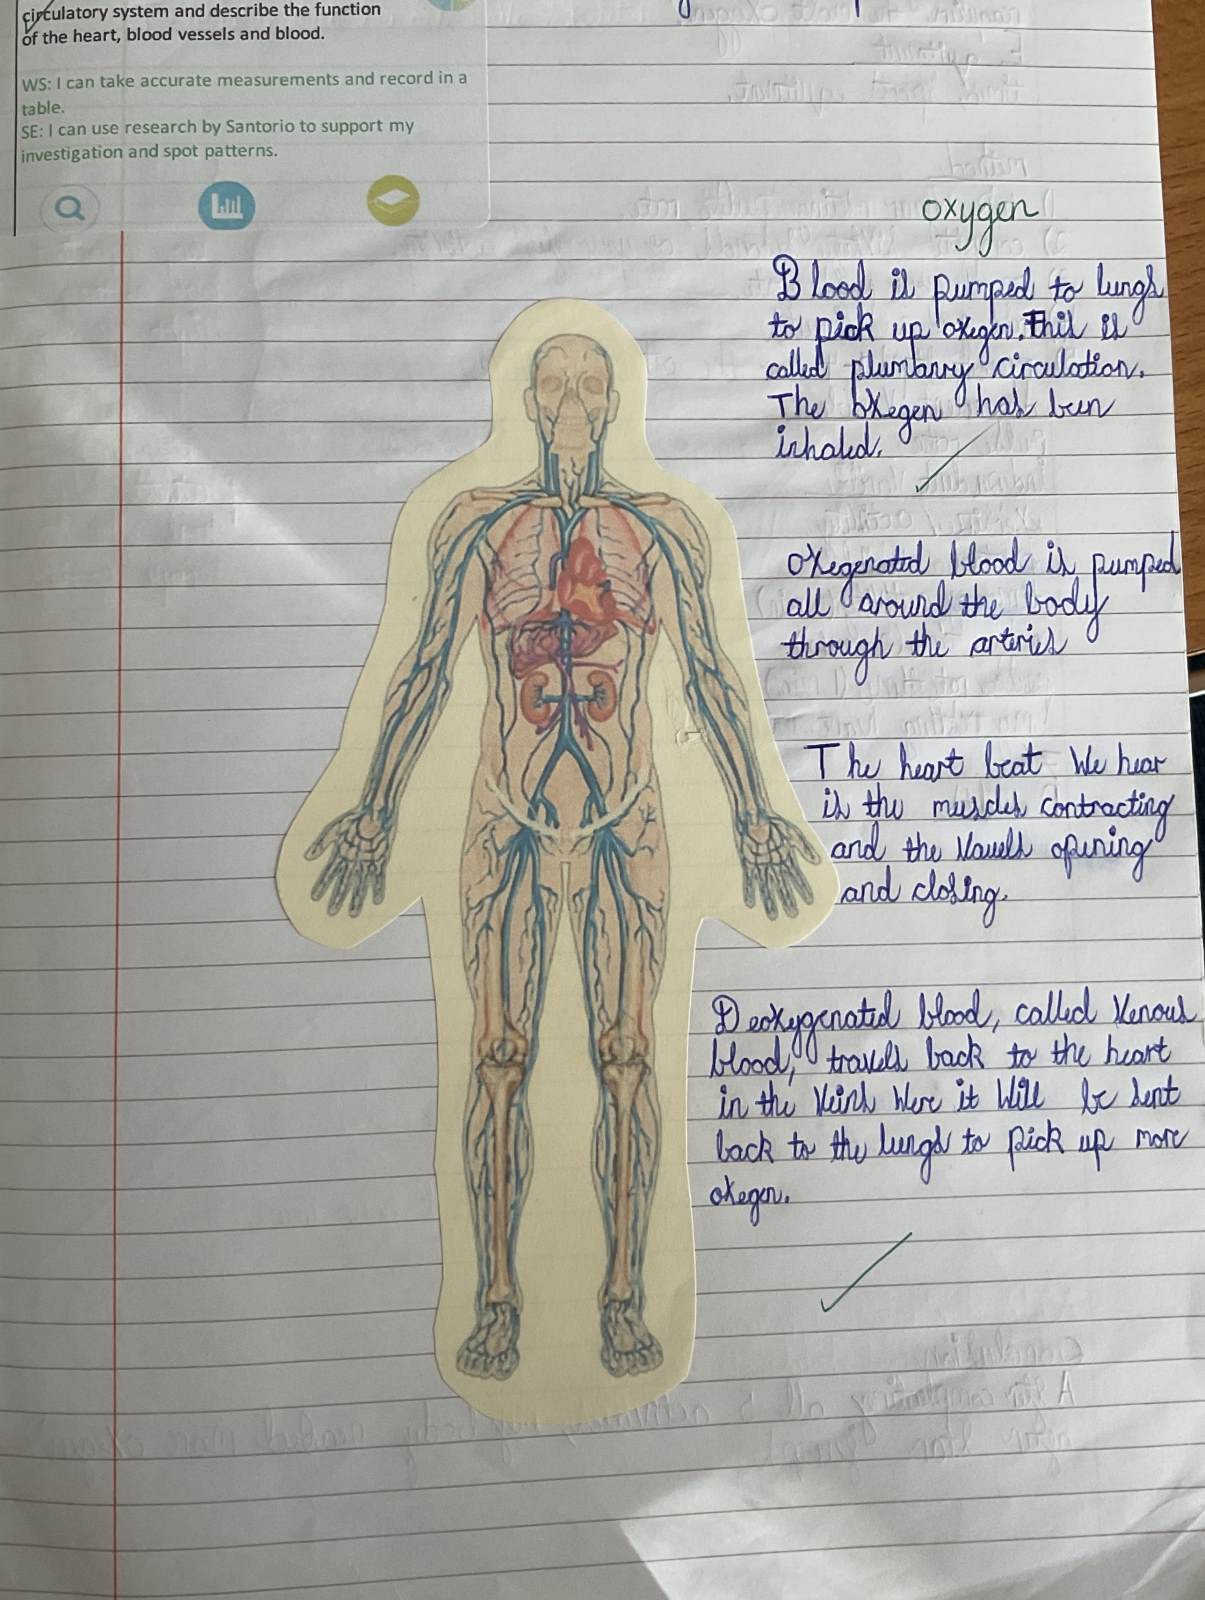 circulatory system and describe the function
of the heart, blood vessels and blood.
WS: I can take accurate measurements and record in a
table.
SE: I can use research by Santorio to support my
investigation and spot patterns.
oxygen
Blood is pumped to lungs
to pick up oxegen. This is
called plumbarry circulation.
The oxegen has been
inhaled.
oxegenated blood is pumped
all around the body
through the arteries
The heart beat We hear
is the muscles contracting
and the Vauels opening
and closing.
Deoxygenated blood, called Venous
blood, travels back to the heart
in the Veins Were it Will be sent
back to the lungs to pick up more
oxegen.